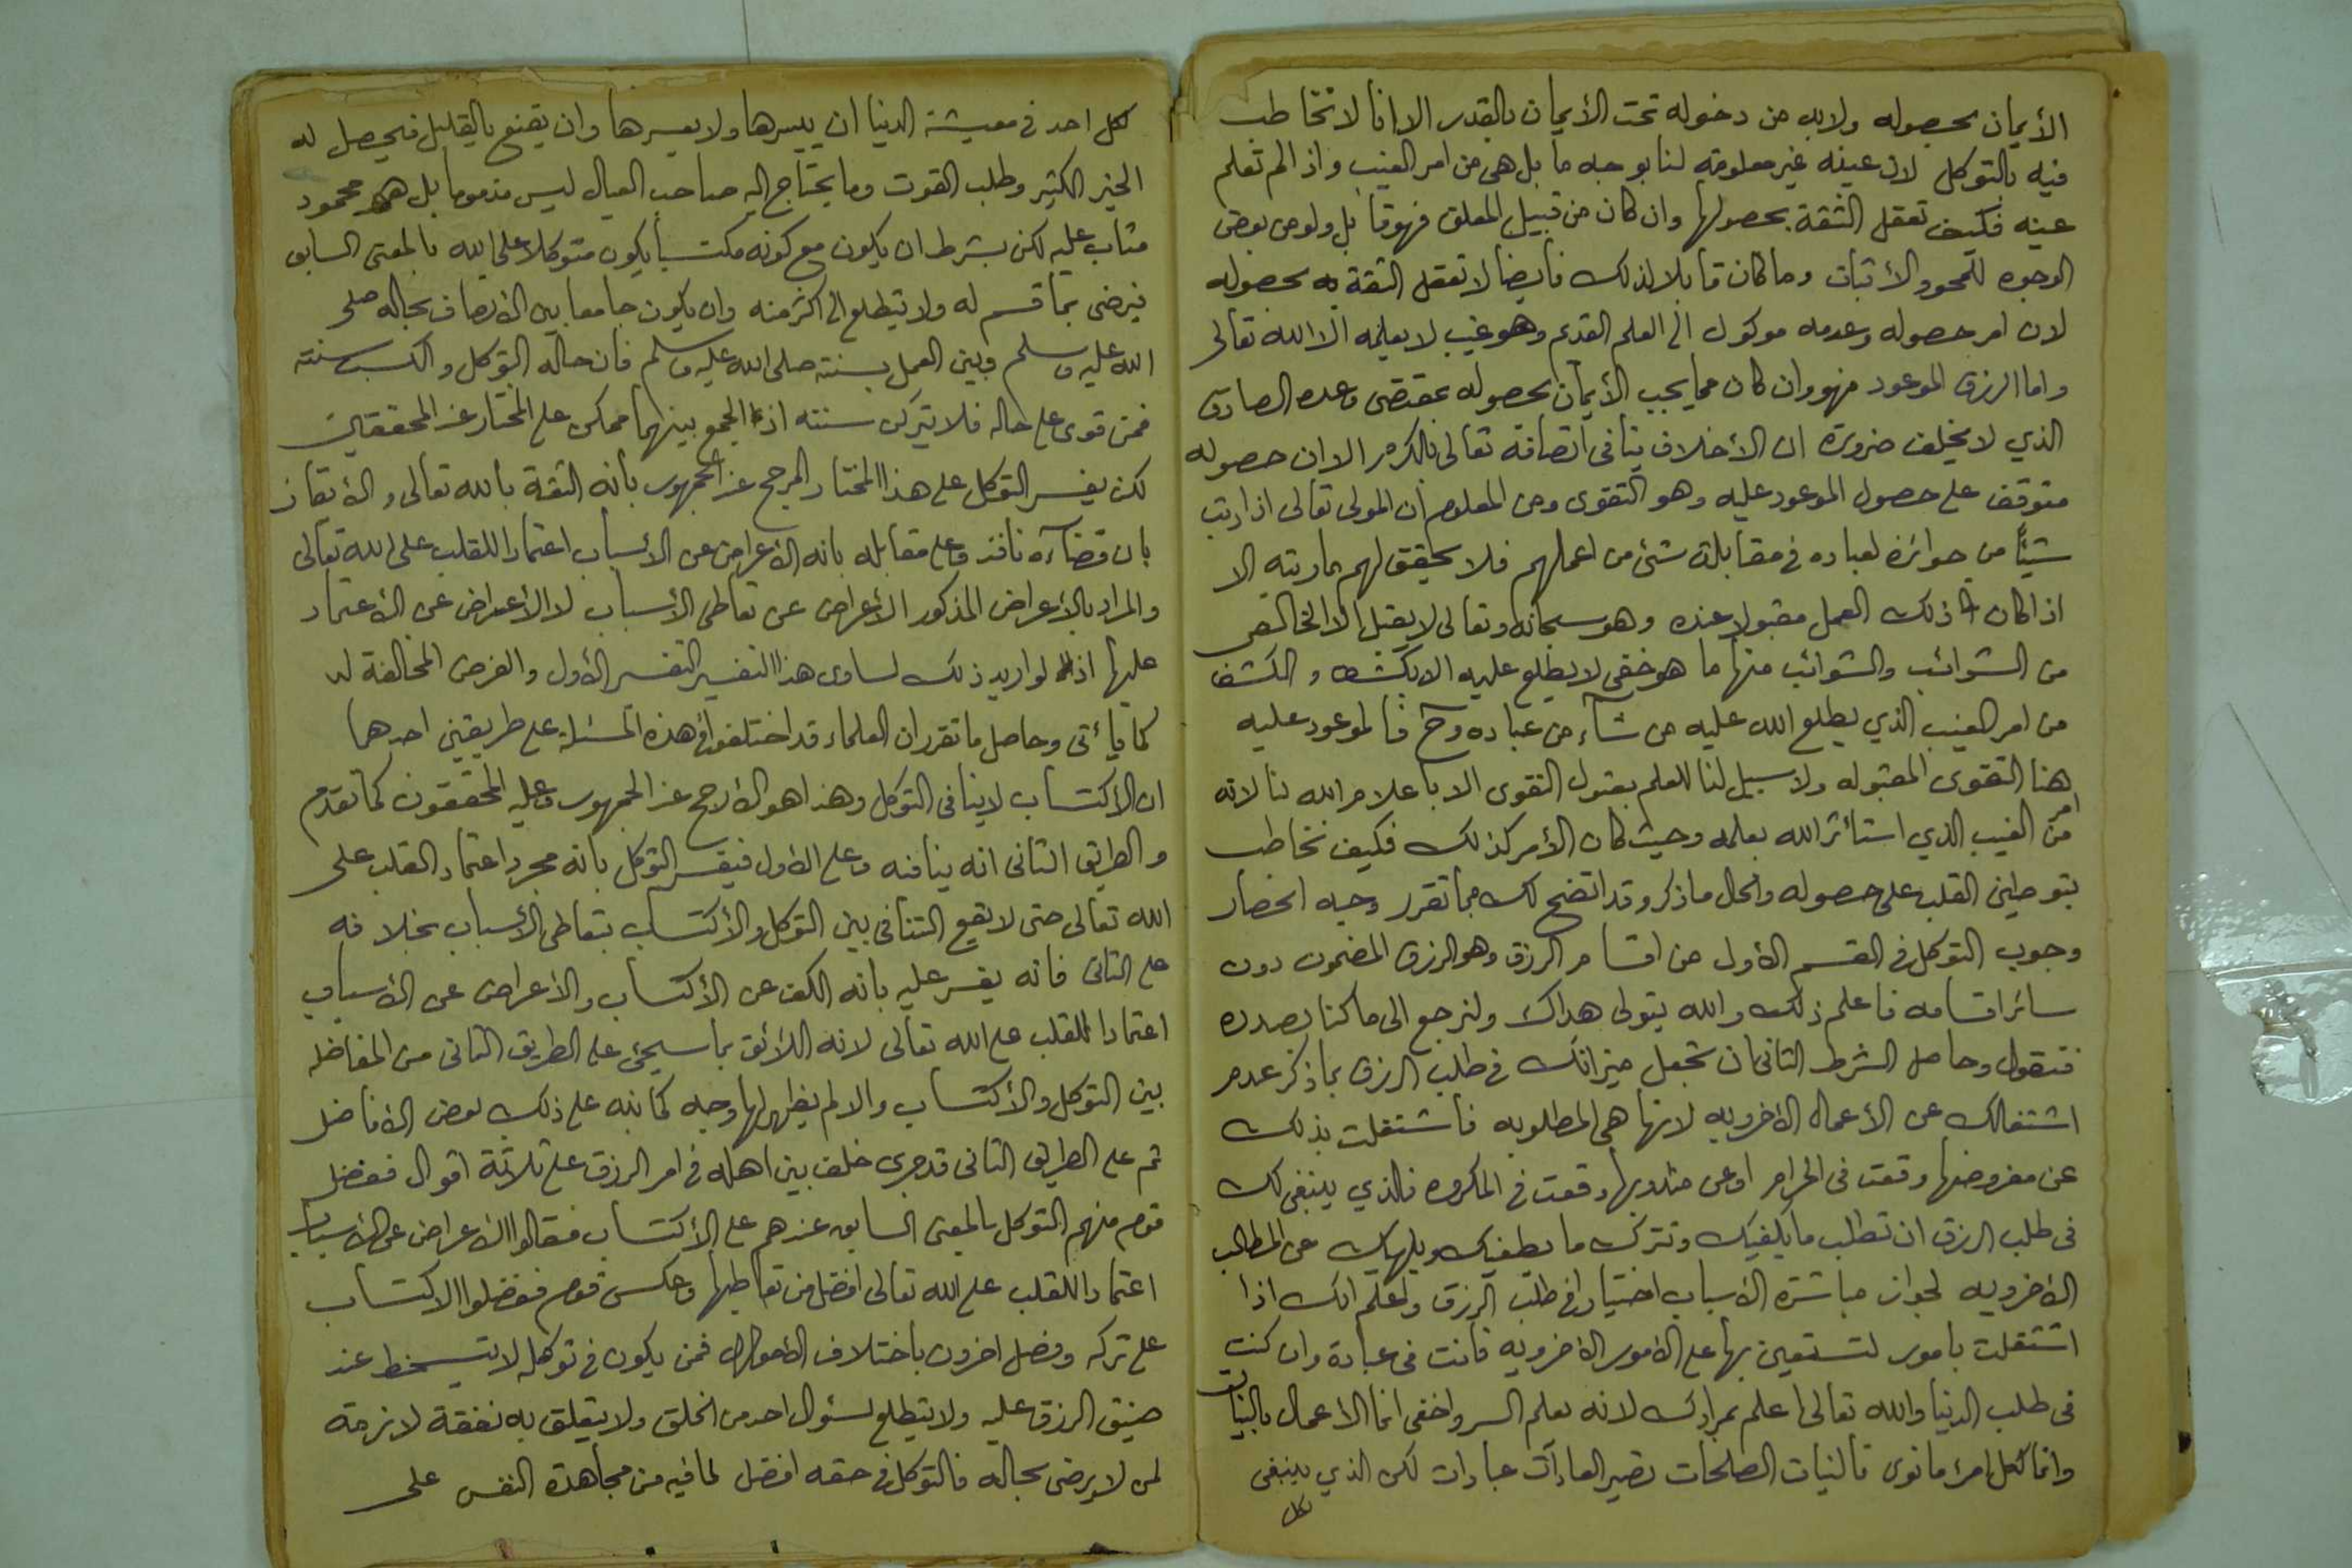 الأيمان بحصوله ولابد من دخوله تحت الأيمان بالقدر الا انا لا نخاطب
فيه بالتوكل لان عينه غير معلومة لنا بوجه ما بل هى من امر الغيب واذا لم تعلم
عينه فكيف تعقل الثقة بحصولها وان كان من قبيل المعلق فهو قابل ولو من بعض
الوجوه للمحو والأثبات وما كان قابلا لذلك فأيضا لا تعقل الثقة به بحصوله
لان امر حصوله وعدمه موكول الى العلم القديم وهو غيب لا يعلمه الا الله تعالى
واما الرزق الموعود فهو وان كان مما يجب الأيمان بحصوله بمقتضى وعده الصادق
الذي لا يخلف ضرورة ان الأخلاف ينافى اتصافه تعالى بالكرم الا ان حصوله
متوقف على حصول الموعود عليه وهو التقوى ومن المعلوم ان المولى تعالى اذا رتب
شيئا من جوائزه لعباده فى مقابلة شئ من اعملهم فلا يحقق لهم ما رتبه الا
اذا كان ذلك العمل مقبولا عنده وهو سبحانه وتعالى لا يقبل الا الخالص
من الشوائب والشوائب منها ما هو خفى لا يطلع عليه الا بكشف والكشف
من امر الغيب الذي يطلع الله عليه من شآء من عباده وح فالموعود عليه
هنا التقوى المقبوله ولا سبيل لنا للعلم بقبول التقوى الا باعلام الله لنا لانه
من امر الغيب الذي استأثر الله بعلمه وحيث كان الأمر كذلك فكيف نخاطب
بتوطين القلب على حصوله والحال ما ذكر وقد اتضح لك مما تقرر وجه انحصار
وجوب التوكل فى القسم الأول من اقسام الرزق وهو الرزق المضمون دون
سائر اقسامه فاعلم ذلك والله يتولى هداك ولنرجع الى ما كنا بصدده
فنقول وحاصل الشرط الثانى ان تجعل ميزانك فى طلب الرزق بما ذكر عدم
اشتغالك عن الأعمال الاخرويه لانها هى المطلوبه فأشتغلت بذلك
عن مفروضها وقعت فى الحرام او عن مندوبها وقعت فى المكروه فالذي ينبغى لك
فى طلب الرزق ان تطلب ما يكفيك وتترك ما يطغيك ويلهيك عن المطالب
الأخرويه لجواز مباشرة الأسباب اختيارا فى طلب الرزق واعلم انك اذا
اشتغلت بامور لتستعين بها على الامور الاخرويه فانت فى عبادة وان كنت
فى طلب الدنيا والله تعالى اعلم بمرادك لانه يعلم السر واخفى انما الأعمال بالنيات
وانما لكل امرء ما نوى فالنيات الصلحات تصير العادآت عبادات لكن الذي ينبغى
لكل
لكل احد فى معيشة الدنيا ان ييسرها ولا يعسرها وان يقنع بالقليل فيحصل له
الخير الكثير وطلب القوت وما يحتاج اليه صاحب العيال ليس مذموما بل هو محمود
مثاب عليه لكن بشرط ان يكون مع كونه مكتسبا يكون متوكلا على الله بالمعنى السابق
فيرضى بما قسم له ولا يتطلع الى اكثر منه وان يكون جامعا بين الأتصاف بحاله صلى
الله عليه وسلم وبين العمل بسنته صلى الله عليه وسلم فان حاله التوكل والكسب سنته
فمن قوى على حاله فلا يتركن سنته اذ الجمع بينهما ممكن على المختار عند المحققين
لكن يفسر التوكل على هذا المختار المرجح عند الجمهور بأنه الثقة بالله تعالى والأيقان
بان قضآءه نافذ وعلى مقابله بانه الأعراض عن الأسباب اعتمادا للقلب على الله تعالى
والمراد بالأعراض المذكور الأعراض عن تعاطى الأسباب لا الأعراض عن الأعتماد
عليها اذ لو اريد ذلك لساوى هذا التفسير التفسير الأول والغرض المخالفة له
كما يأتى وحاصل ما تقرر ان العلماء قد اختلفوا فى هذه المسئلة على طريقين احدهما
ان الأكتساب لا ينافى التوكل وهذا هو الأرجح عند الجمهور وعليه المحققون كما تقدم
والطريق الثانى انه ينافيه وعلى الأول فيفسر التوكل بانه مجرد اعتماد القلب على
الله تعالى حتى لا يقع التنافى بين التوكل والأكتساب بتعاطى الأسباب بخلافه
على الثانى فانه يفسر عليه بأنه الكف عن الأكتساب والأعراض عن الأسباب
اعتمادا للقلب على الله تعالى لانه اللائق بما سيجئ على الطريق الثانى من المفاضله
بين التوكل والأكتساب والا لم يظهر لها وجه كما نبه على ذلك بعض الأفاضل
ثم على الطريق الثانى قد جرى خلف بين اهله فى امر الرزق على ثلاثة اقوال ففضل
قوم منهم التوكل بالمعنى السابق عندهم على الأكتساب فقالوا الأعراض عن الأسباب
اعتمادا للقلب على الله تعالى افضل من تعاطيها وعكس قوم ففضلوا الاكتساب
على تركه وفصل اخرون باختلاف الأحوال فمن يكون فى توكله لا يتسخط عند
ضيق الرزق عليه ولا يتطلع لسئوال احد من الخلق ولا يتعلق به نفقة لازمة
لمن لا يرضى بحاله فالتوكل فى حقه افضل لما فيه من مجاهدة النفس على